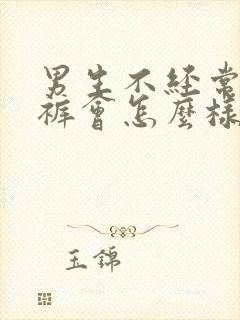 男生不经常
裤會怎麼樣
玉錦